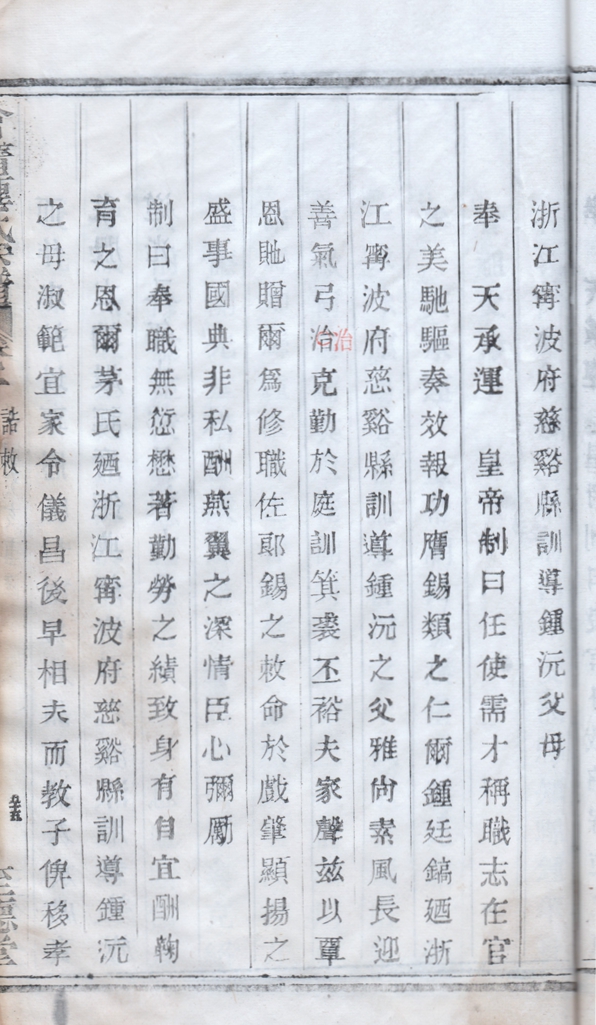 浙江甯波府慈谿縣訓導鍾沅父母
奉　天承運　皇帝制曰任使需才稱職志在官
之美馳驅奏效報功膺錫類之仁爾鍾廷鎬廼浙
江甯波府慈谿縣訓導鍾沅之父雅尙素風長迎
善氣弓治克勤於庭訓箕裘丕裕夫家聲茲以覃
治
恩貤贈爾爲修職佐郎錫之敕命於戲肇顯揚之
盛事國典非私酬燕翼之深情臣心彌勵
制曰奉職無愆懋著勤勞之績致身有自宜酬鞠
育之恩爾茅氏廼浙江甯波府慈谿縣訓導鍾沅
之母淑範宜家令儀昌後早相夫而教子俾移孝
氏宗譜
誥敕